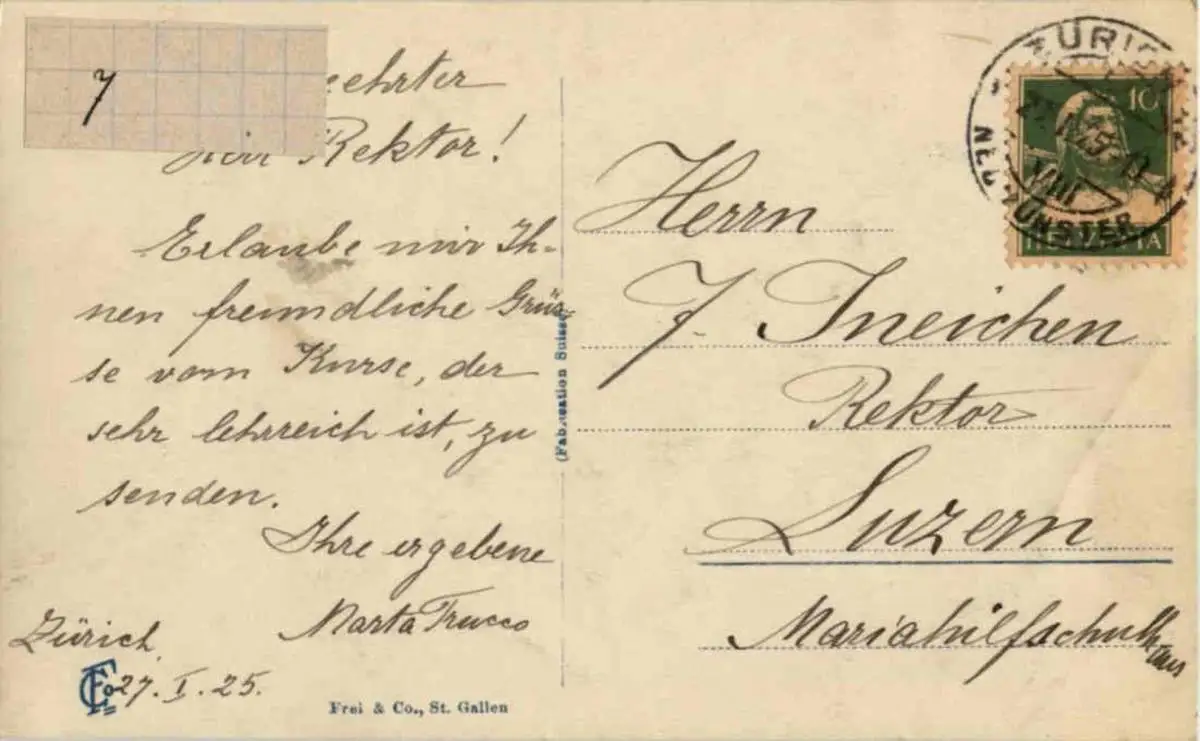 7
eehrter
Herr Rektor!
Erlaube mir Ih-
nen freundliche Grüs-
se vom Kurse, der
sehr lehrreich ist, zu
senden.
Ihre ergebene
Marta Trucco
Zürich,
27. I. 25.
Frei & Co., St. Gallen
(Fabrication Suisse)
ZÜRICH
VIII
NEUMÜNSTER
10
HELVETIA
Herrn
J. Ineichen
Rektor
Luzern
Mariahilfschulhaus